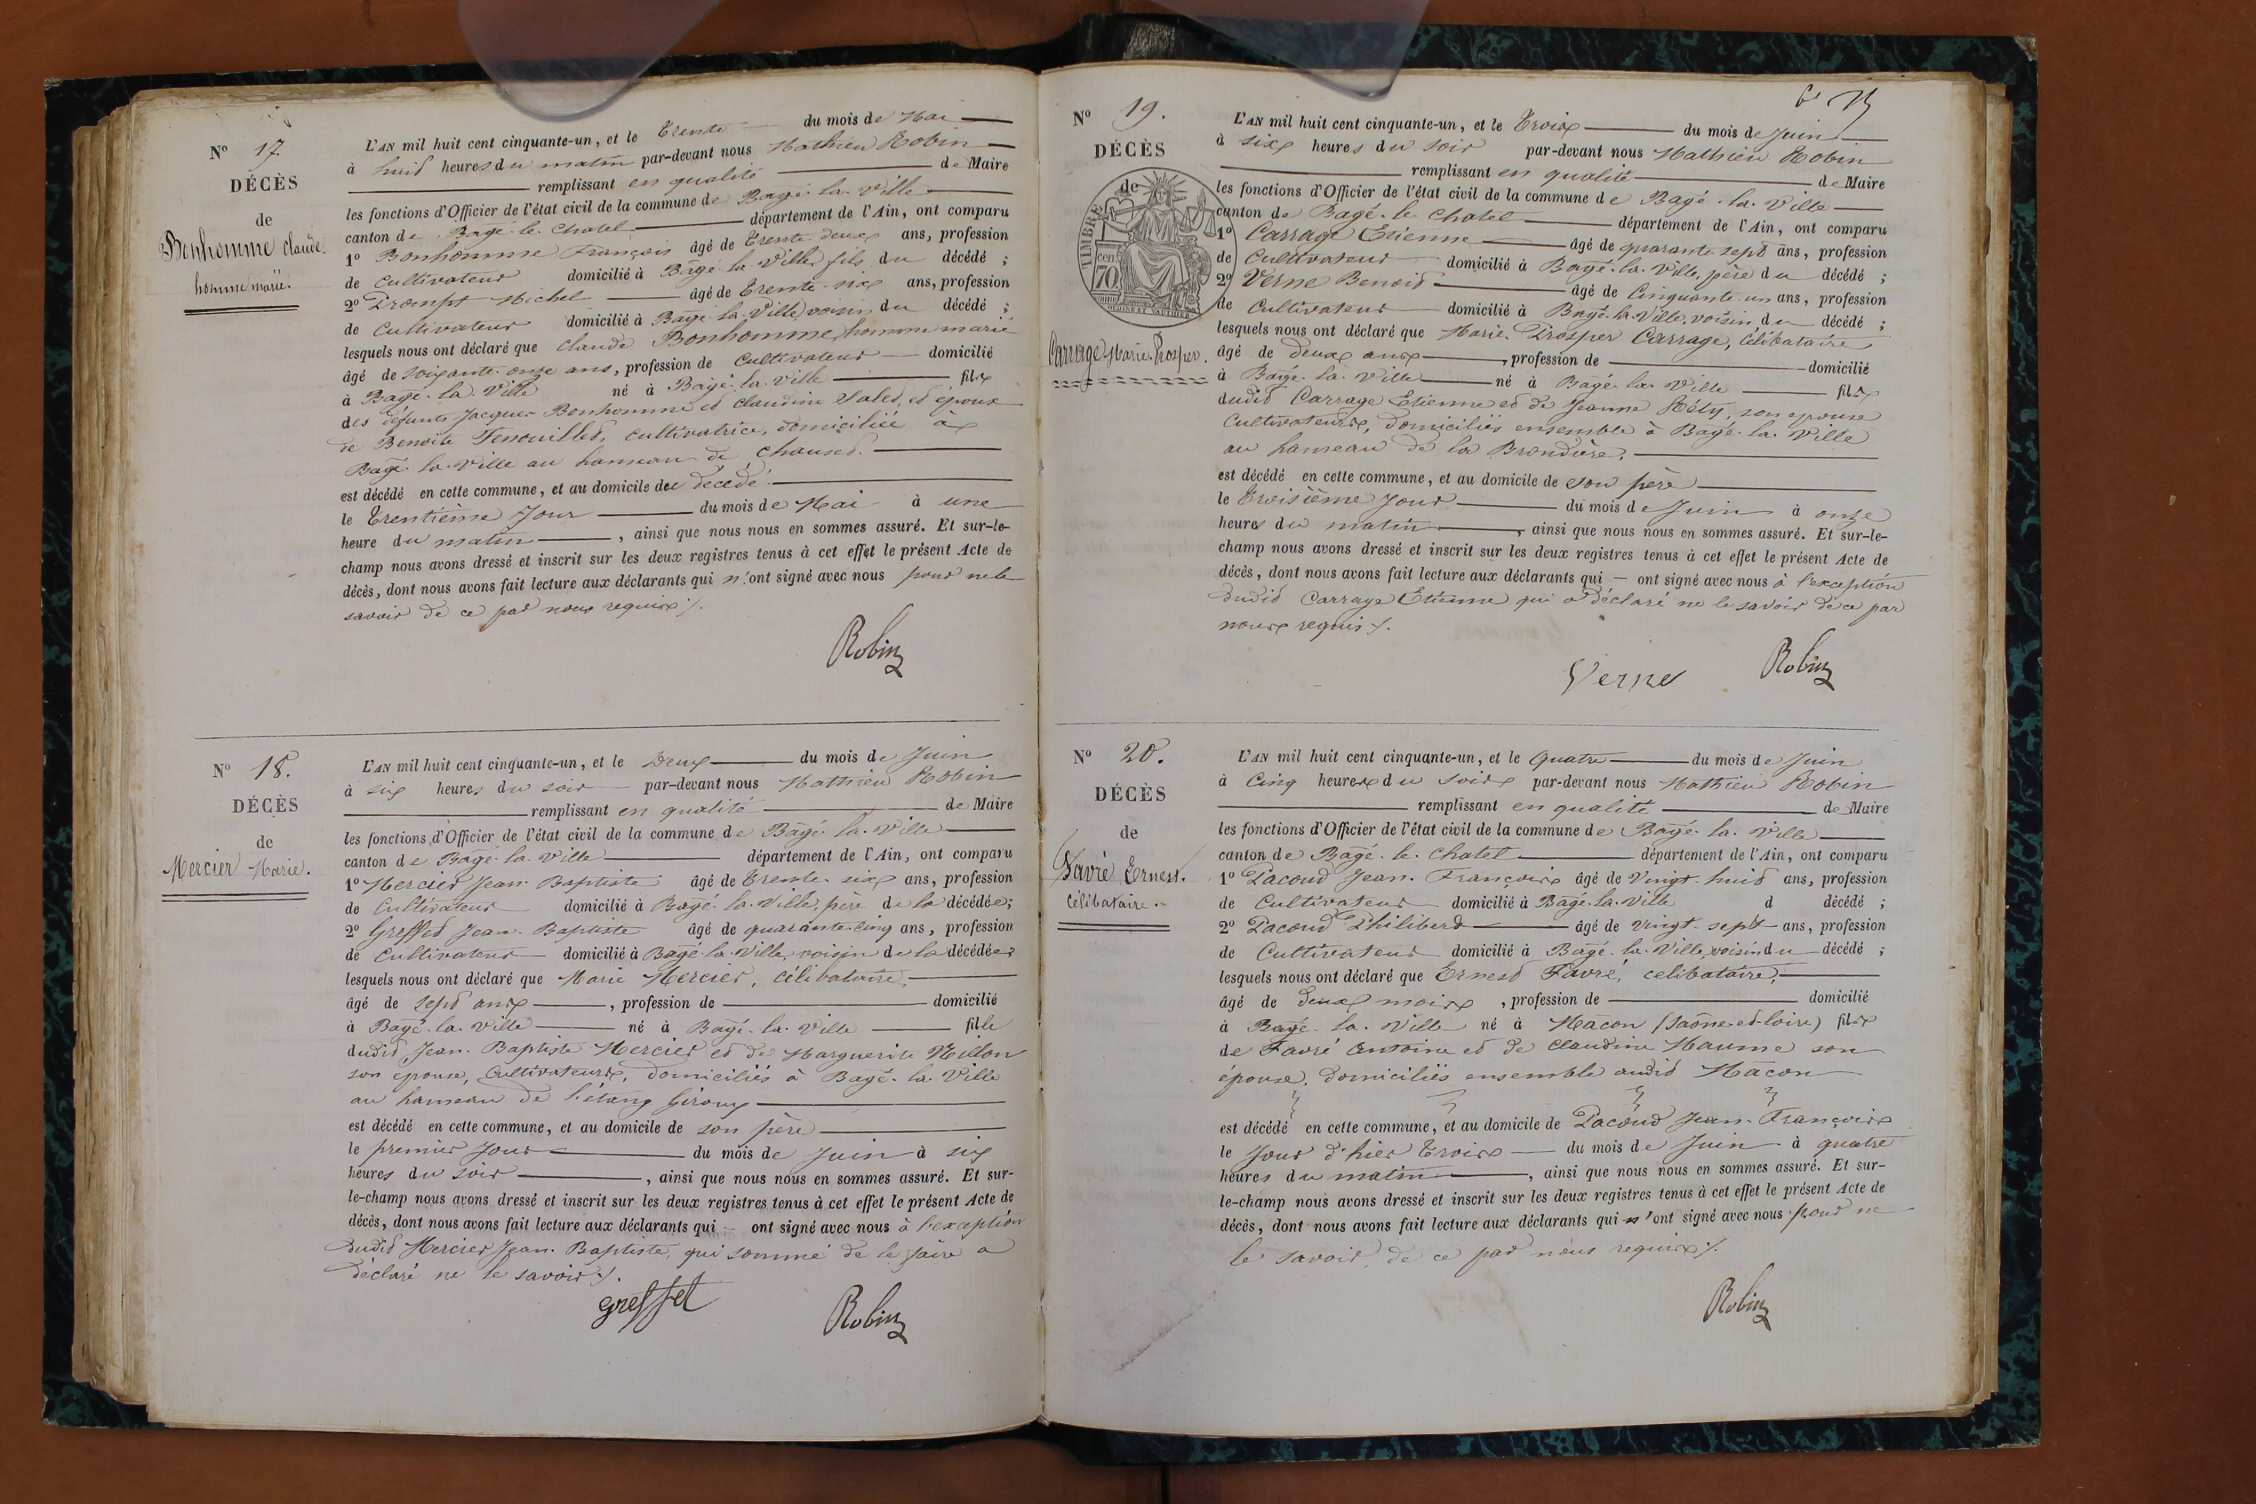 N° 17.
DÉCÈS
de
Bonhomme Claude.
homme marié.
L'AN mil huit cent cinquante-un, et le Trente du mois de Mai
à huit heures du matin par-devant nous Mathieu Robin
remplissant en qualité de Maire
les fonctions d'Officier de l'état civil de la commune de Bagé-la-Ville
canton de Bagé-le-Chatel département de l'Ain, ont comparu
1° Bonhomme François âgé de Trente-deux ans, profession
de Cultivateur domicilié à Bagé-la-Ville, fils du décédé ;
2° Prompt Michel âgé de Trente-six ans, profession
de Cultivateur domicilié à Bagé-la-Ville, voisin du décédé ;
lesquels nous ont déclaré que Claude Bonhomme, homme marié
âgé de soixante-onze ans, profession de Cultivateur domicilié
à Bagé-la-Ville né à Bagé-la-Ville fils
des défunts Jacques Bonhomme et Claudine et époux
de Benoîte Fenouillet, cultivatrice, domiciliée à
Bagé-la-Ville au hameau de Chauset.
est décédé en cette commune, et au domicile du décédé
le Trentième Jour du mois de Mai à une
heure du matin, ainsi que nous nous en sommes assuré. Et sur-le-
champ nous avons dressé et inscrit sur les deux registres tenus à cet effet le présent Acte de
décès, dont nous avons fait lecture aux déclarants qui n'ont signé avec nous pour ne le
savoir de ce par nous requis ./.
Robin
N° 18.
DÉCÈS
de
Mercier Marie.
L'AN mil huit cent cinquante-un, et le Deux du mois de Juin
à six heures du soir par-devant nous Mathieu Robin
remplissant en qualité de Maire
les fonctions d'Officier de l'état civil de la commune de Bagé-la-Ville
canton de Bagé-la-Ville département de l'Ain, ont comparu
1° Mercier Jean-Baptiste âgé de Trente-six ans, profession
de Cultivateur domicilié à Bagé-la-Ville, père de la décédée ;
2° Greffet Jean-Baptiste âgé de quarante-cinq ans, profession
de Cultivateur domicilié à Bagé-la-Ville, voisin de la décédée ;
lesquels nous ont déclaré que Marie Mercier, célibataire,
âgé de sept ans, profession de domicilié
à Bagé-la-Ville né à Bagé-la-Ville fille
dudit Jean-Baptiste Mercier et de Marguerite Million
son épouse, Cultivateurs, domiciliés à Bagé-la-Ville
au hameau de l'étang Giroux
est décédé en cette commune, et au domicile de son père
le premier Jour du mois de Juin à six
heures du soir, ainsi que nous nous en sommes assuré. Et sur-
le-champ nous avons dressé et inscrit sur les deux registres tenus à cet effet le présent Acte de
décès, dont nous avons fait lecture aux déclarants qui ont signé avec nous à l'exception
dudit Mercier Jean-Baptiste, qui sommé de le faire a
déclaré ne le savoir ./.
Greffet Robin
N° 19.
DÉCÈS
de
TIMBRE
cen
70
Carrage Marie-Prosper.
L'AN mil huit cent cinquante-un, et le Trois du mois de Juin
à six heures du soir par-devant nous Mathieu Robin
remplissant en qualité de Maire
les fonctions d'Officier de l'état civil de la commune de Bagé-la-Ville
canton de Bagé-le-Chatel département de l'Ain, ont comparu
1° Carrage Etienne âgé de quarante-sept ans, profession
de Cultivateur domicilié à Bagé-la-Ville, père du décédé ;
2° Verne Benoit âgé de Cinquante-un ans, profession
de Cultivateur domicilié à Bagé-la-Ville, voisin du décédé ;
lesquels nous ont déclaré que Marie-Prosper Carrage, célibataire
âgé de deux ans, profession de domicilié
à Bagé-la-Ville né à Bagé-la-Ville fils
dudit Carrage Etienne et de Jeanne Réty, son épouse
Cultivateurs, domiciliés ensemble à Bagé-la-Ville
au hameau de la Brondière.
est décédé en cette commune, et au domicile de son père
le Troisième Jour du mois de Juin à onze
heures du matin, ainsi que nous nous en sommes assuré. Et sur-le-
champ nous avons dressé et inscrit sur les deux registres tenus à cet effet le présent Acte de
décès, dont nous avons fait lecture aux déclarants qui ont signé avec nous à l'exception
dudit Carrage Etienne qui a déclaré ne le savoir de ce par
nous requis ./.
Verne Robin
N° 20.
DÉCÈS
de
Favré Ernest.
Célibataire.
L'AN mil huit cent cinquante-un, et le Quatre du mois de Juin
à Cinq heures du soir par-devant nous Mathieu Robin
remplissant en qualité de Maire
les fonctions d'Officier de l'état civil de la commune de Bagé-la-Ville
canton de Bagé-le-Chatel département de l'Ain, ont comparu
1° Pacoud Jean-François âgé de Vingt-huit ans, profession
de Cultivateur domicilié à Bagé-la-Ville d décédé ;
2° Pacoud Philibert âgé de vingt-sept ans, profession
de Cultivateur domicilié à Bagé-la-Ville, voisin du décédé ;
lesquels nous ont déclaré que Ernest Favré, célibataire,
âgé de deux mois, profession de domicilié
à Bagé-la-Ville né à Mâcon (Saône-et-Loire) fils
de Favré Antoine et de Claudine Maume son
épouse, domiciliés ensemble audit Mâcon
est décédé en cette commune, et au domicile de Pacoud Jean-François
le Jour d'hier Trois du mois de Juin à quatre
heures du matin, ainsi que nous nous en sommes assuré. Et sur-
le-champ nous avons dressé et inscrit sur les deux registres tenus à cet effet le présent Acte de
décès, dont nous avons fait lecture aux déclarants qui n'ont signé avec nous pour ne
le savoir de ce par nous requis ./.
Robin